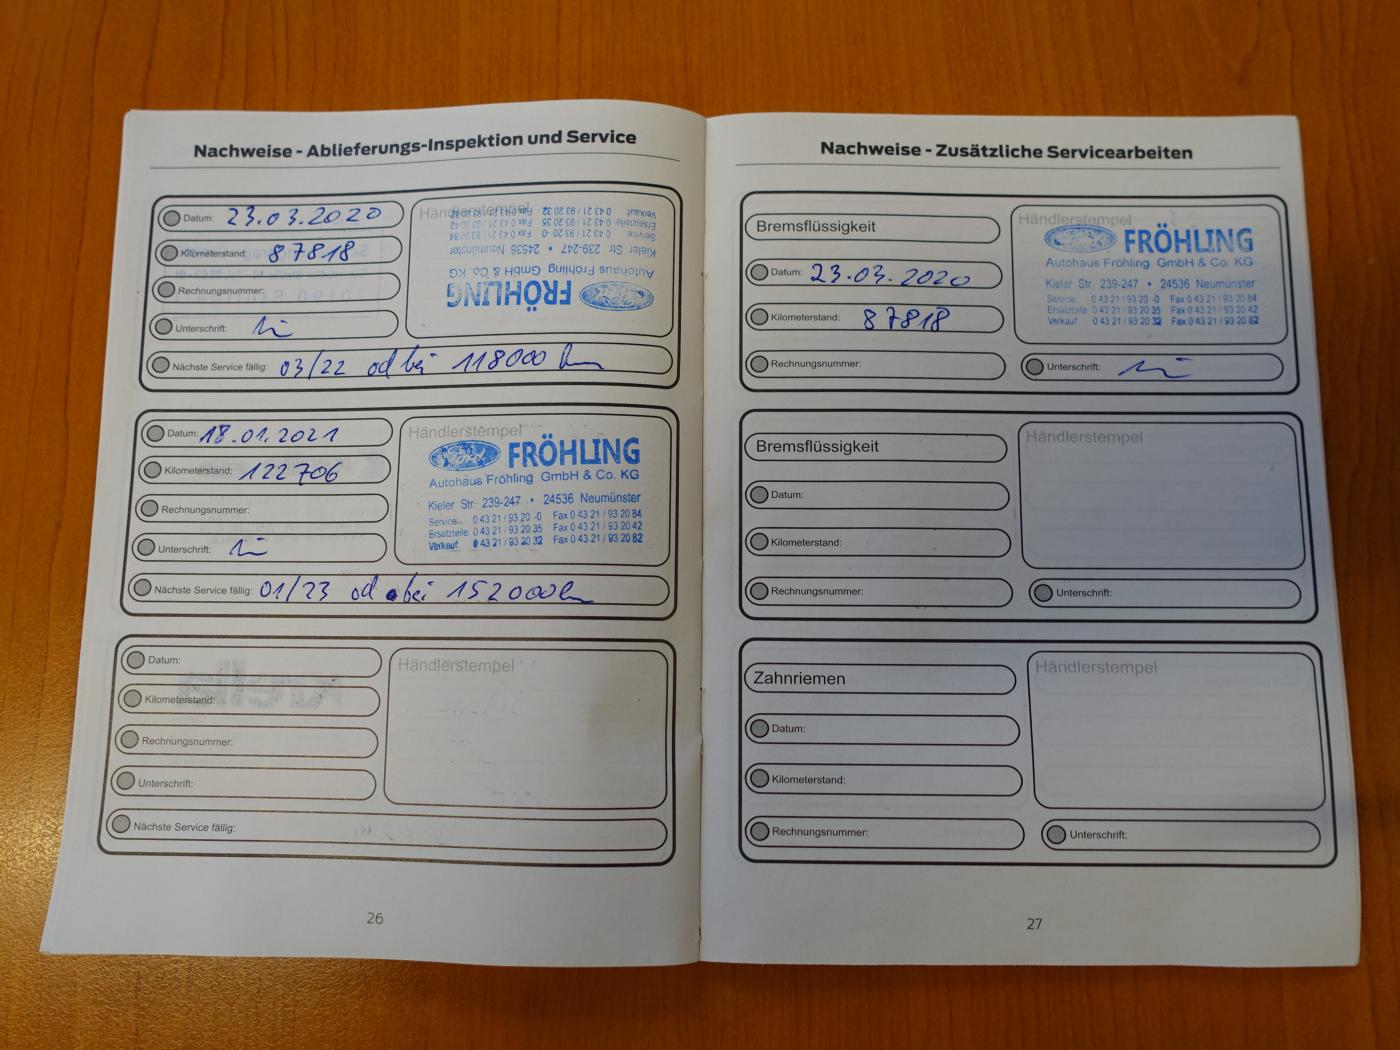 Nachweise - Ablieferungs-Inspektion und Service
Datum: 23.03.2020
Kilometerstand: 87818
Rechnungsnummer:
Unterschrift:
Händlerstempel
FRÖHLING
Autohaus Fröhling GmbH & Co. KG
Kieler Str. 239-247 • 24536 Neumünster
Service: 0 43 21 / 93 20 -0 Fax 0 43 21 / 93 20 84
Ersatzteile: 0 43 21 / 93 20 35 Fax 0 43 21 / 93 20 42
Verkauf: 0 43 21 / 93 20 32 Fax 0 43 21 / 93 20 82
Nächste Service fällig: 03/22 od bei 118000 km
Datum: 18.01.2021
Kilometerstand: 122706
Rechnungsnummer:
Unterschrift:
Händlerstempel
Ford FRÖHLING
Autohaus Fröhling GmbH & Co. KG
Kieler Str. 239-247 • 24536 Neumünster
Service: 0 43 21 / 93 20 -0 Fax 0 43 21 / 93 20 84
Ersatzteile: 0 43 21 / 93 20 35 Fax 0 43 21 / 93 20 42
Verkauf: 0 43 21 / 93 20 32 Fax 0 43 21 / 93 20 82
Nächste Service fällig: 01/23 od bei 152000 km
Datum:
Kilometerstand:
Rechnungsnummer:
Unterschrift:
Händlerstempel
Nächste Service fällig:
26
Nachweise - Zusätzliche Servicearbeiten
Bremsflüssigkeit
Datum: 23.03.2020
Kilometerstand: 87818
Rechnungsnummer:
Händlerstempel
Ford FRÖHLING
Autohaus Fröhling GmbH & Co. KG
Kieler Str. 239-247 • 24536 Neumünster
Service: 0 43 21 / 93 20 -0 Fax 0 43 21 / 93 20 84
Ersatzteile: 0 43 21 / 93 20 35 Fax 0 43 21 / 93 20 42
Verkauf: 0 43 21 / 93 20 32 Fax 0 43 21 / 93 20 82
Unterschrift:
Bremsflüssigkeit
Datum:
Kilometerstand:
Rechnungsnummer:
Händlerstempel
Unterschrift:
Zahnriemen
Datum:
Kilometerstand:
Rechnungsnummer:
Händlerstempel
Unterschrift:
27